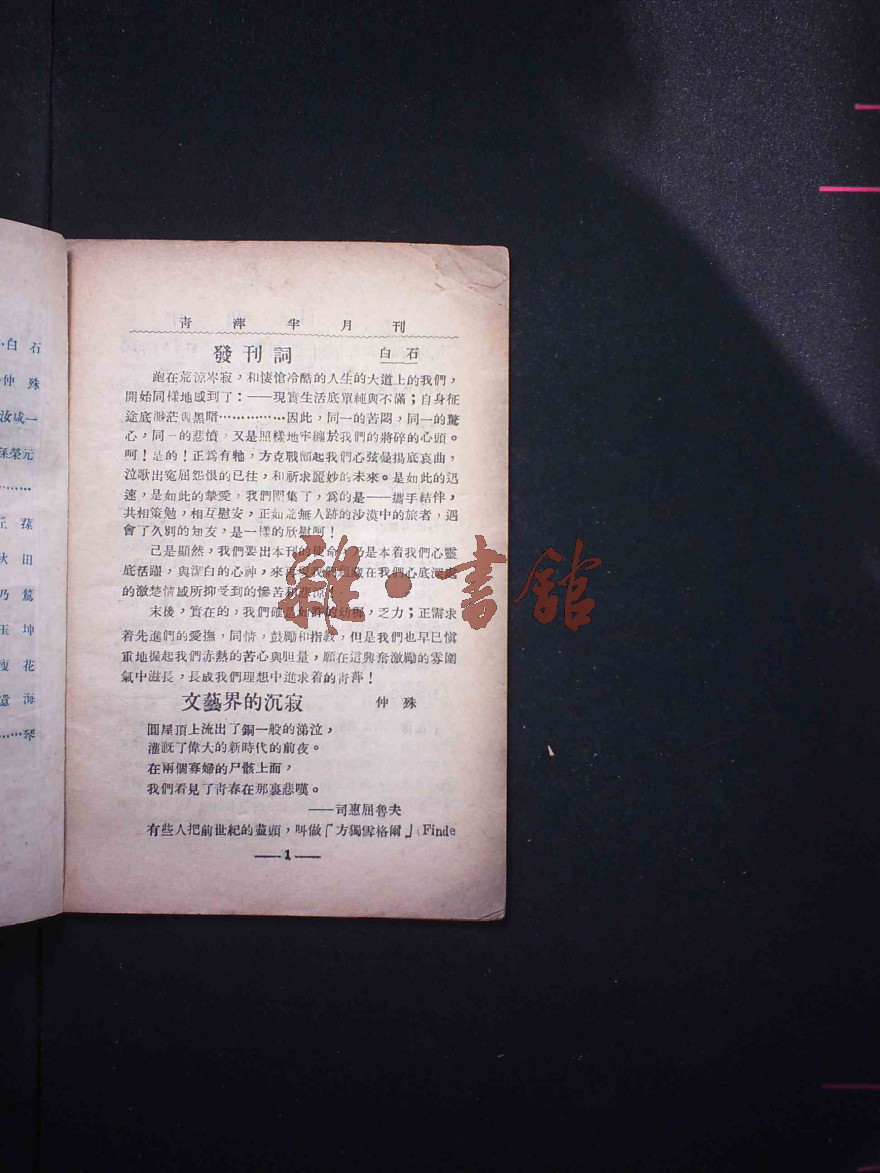 白石
仲殊
汝咸一
孫榮元
秋田
乃鶯
玉坤
瘦花
海
琴
青萍半月刊
發刊詞 白石
跑在荒涼岑寂,和悽愴冷酷的人生的大道上的我們,
開始同樣地感到了:——現實生活底單純與不滿;自身征
途底渺茫與黑暗…………因此,同一的苦悶,同一的驚
心,同一的悲憤,又是照樣地牢纏於我們的將碎的心頭。
呵!是的!正爲有牠,方克戰顫起我們心弦曼揚底哀曲,
泣歌出寃屈怨恨的已往,和祈求麗妙的未來。是如此的迅
速,是如此的摯愛,我們團集了,爲的是——攜手結伴,
共相策勉,相互慰安,正如荒無人跡的沙漠中的旅者,遇
會了久別的知友,是一樣的欣慰呵!
已是顯然,我們要出本刊的使命,乃是本着我們心靈
底活躍,與潔白的心神,來再現我們蘊藏在我們心底深處
的激楚情感所抑受到的慘苦和悲涼!
末後,實在的,我們確是如此的幼稚,乏力;正需求
着先進們的愛撫,同情,鼓勵和指教,但是我們也早已愼
重地提起我們赤熱的苦心與胆量,願在這興奮激勵的雰圍
氣中滋長,長成我們理想中進求着的靑萍!
文藝界的沉寂 仲殊
圓屋頂上流出了銅一般的涕泣,
灌漑了偉大的新時代的前夜。
在兩個寡婦的尸骸上面,
我們看見了靑春在那裏悲嘆。
——司惠屈魯夫
有些人把前世紀的盡頭,叫做「方獨雲格爾」(Finde
——1——
雜·書館